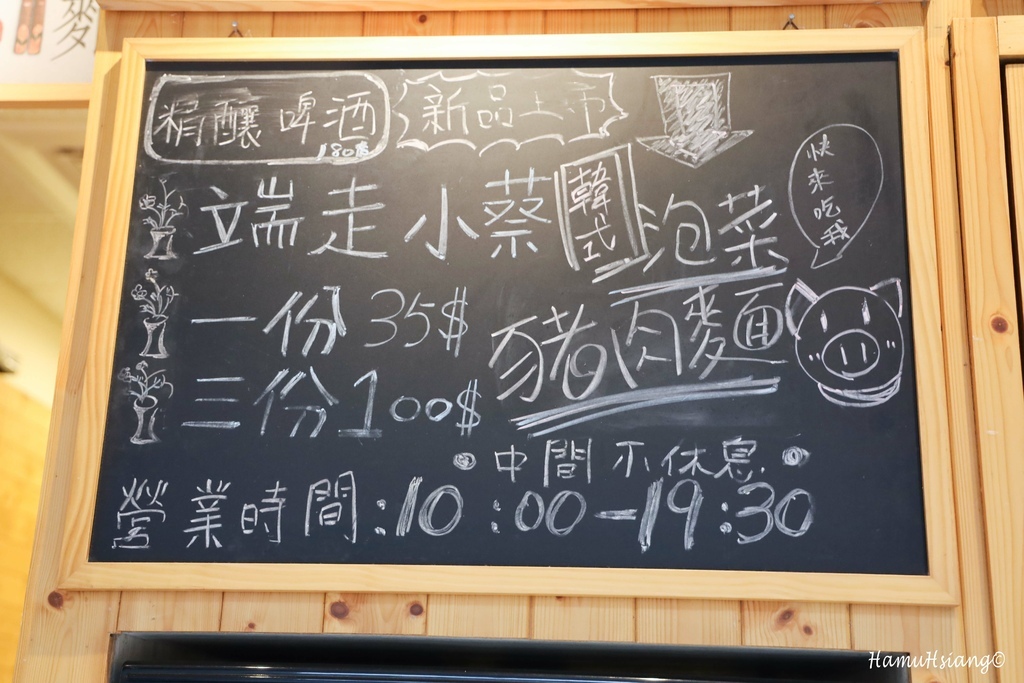 麥
精釀啤酒
180元
新品上市
快來吃我
端走小蔡
韓式
泡菜
豬肉麥面
一份 35$
三份 100$
中間不休息
營業時間:10:00-19:30
HamuHsiang©